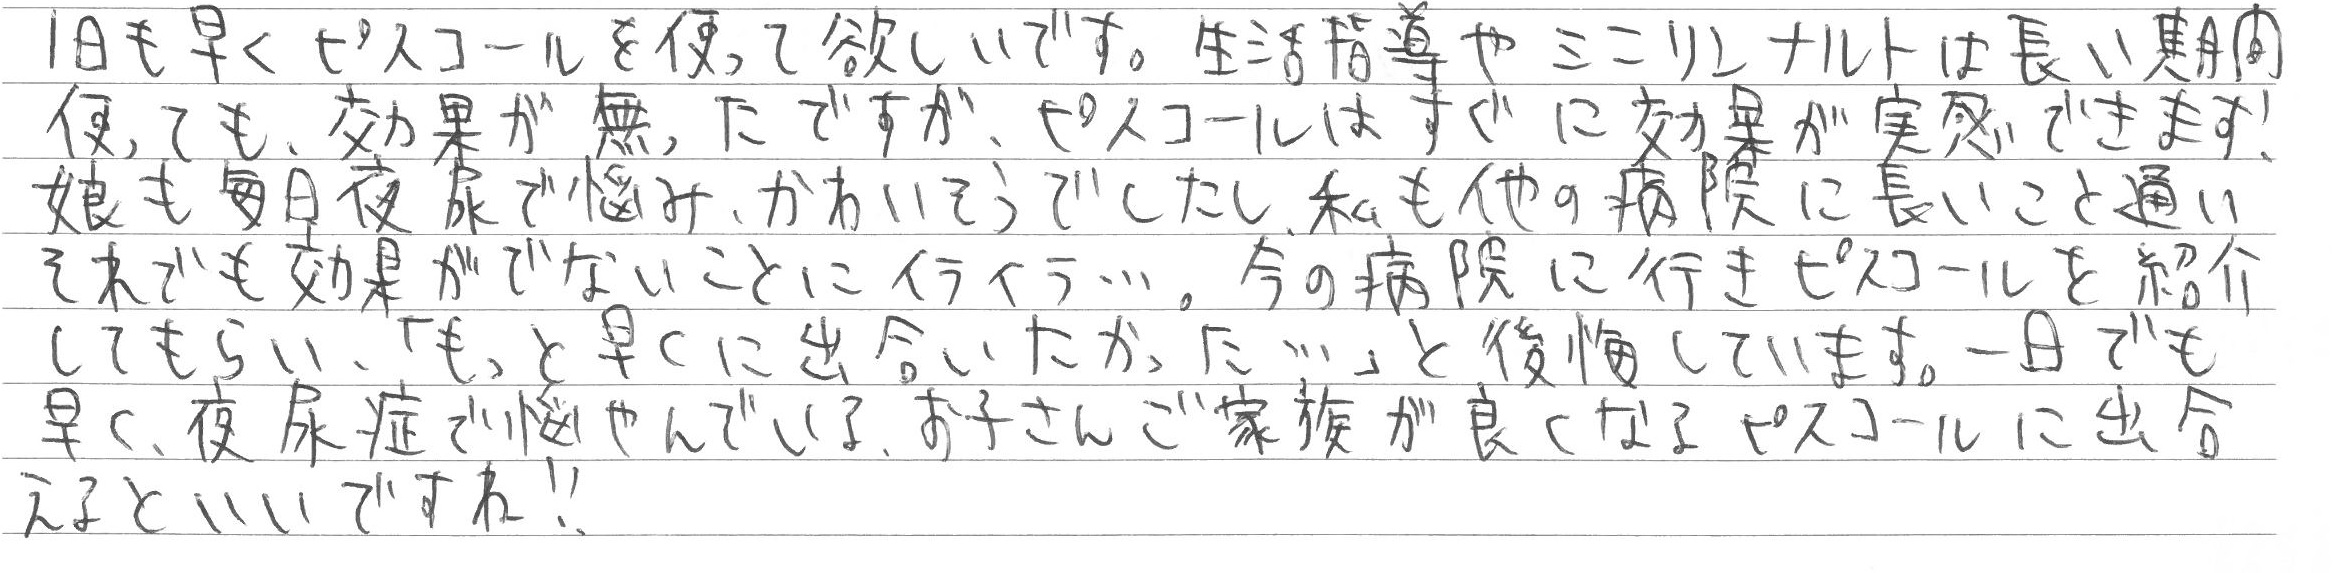 1日も早くピスコールを使って欲しいです。生活指導やミニリンナルトは長い期間
使っても、効果が無ったですが、ピスコールはすぐに効果が実感できます!
娘も毎日夜尿で悩み、かわいそうでしたし、私も他の病院に長いこと通い
それでも効果がでないことにイライラ…。今の病院に行きピスコールを紹介
してもらい、「もっと早くに出合いたかった…」と後悔しています。一日でも
早く、夜尿症で悩やんでいる、お子さんご家族が良くなるピスコールに出合
えるといいですね!!